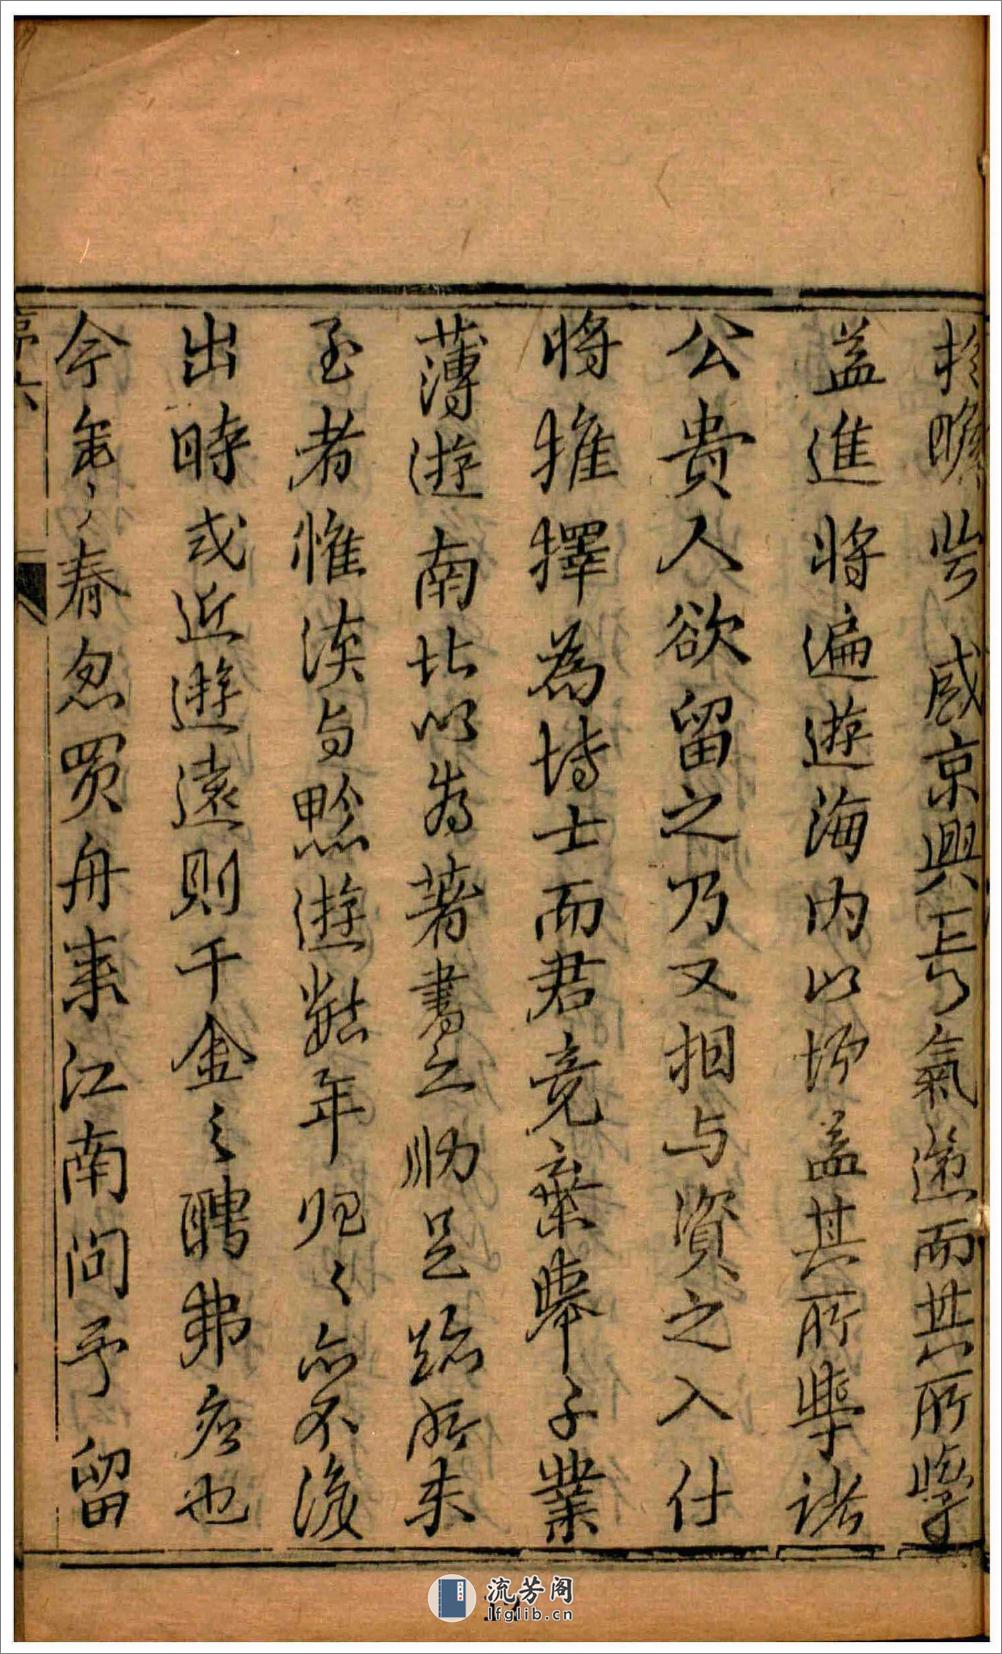 於瞻 咸京興 氣遂而其所學
益進將遍遊海內以增益其所學諸
公貴人欲留之乃又相与資之入仕
將推擇為博士而君竟棄舉子業
薄遊南北以為著書之助足跡所未
至者惟滇与黔遊數年归〻亦不復
出時或近遊遠則千金之聘弗應也
今年〻春忽買舟来江南問予 留
序六
流芳阁
lfglib.cn